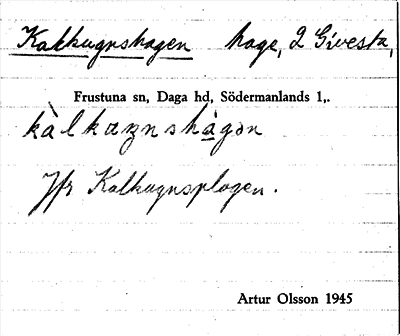 Kalkugnshagen hage, 2 Givesta,
Frustuna sn, Daga hd, Södermanlands l,.
Jfr Kalkugnsplogen.
Artur Olsson 1945